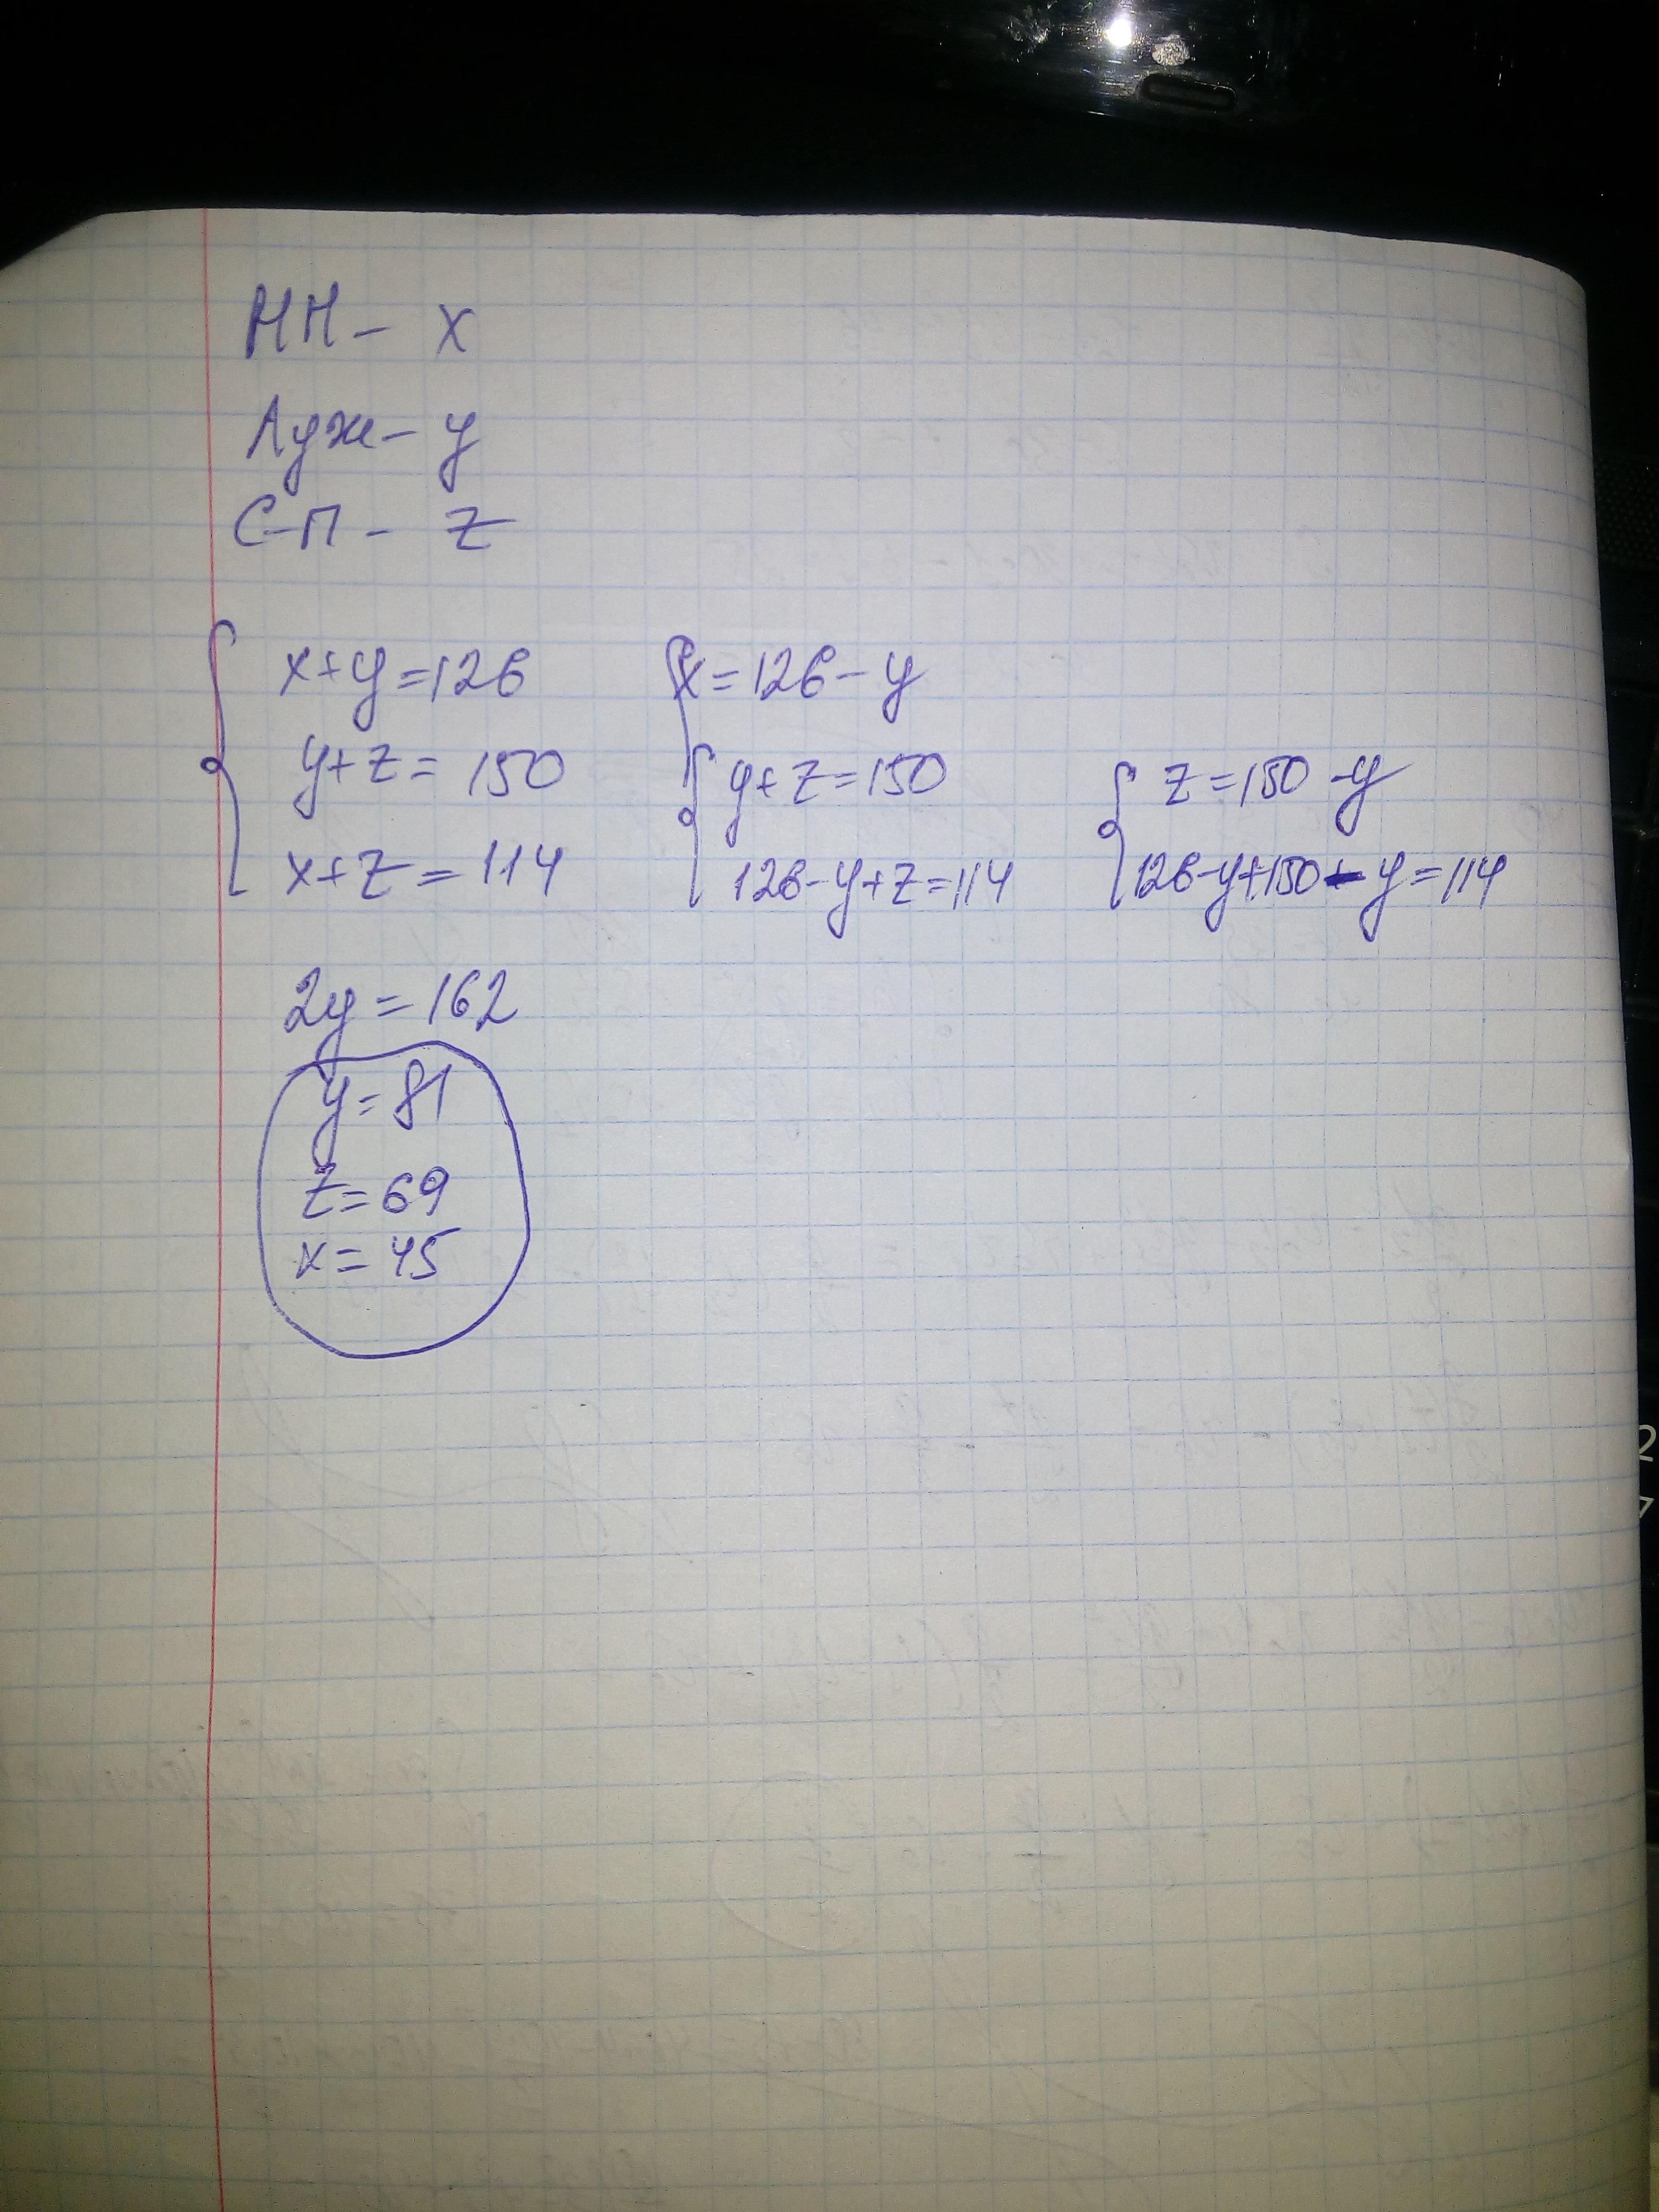 НН - x
Луж - y
С-П - z
x+y=126
y+z=150
x+z=114
x=126-y
y+z=150
126-y+z=114
z=150-y
126-y+150-y=114
2y=162
y=81
z=69
x=45